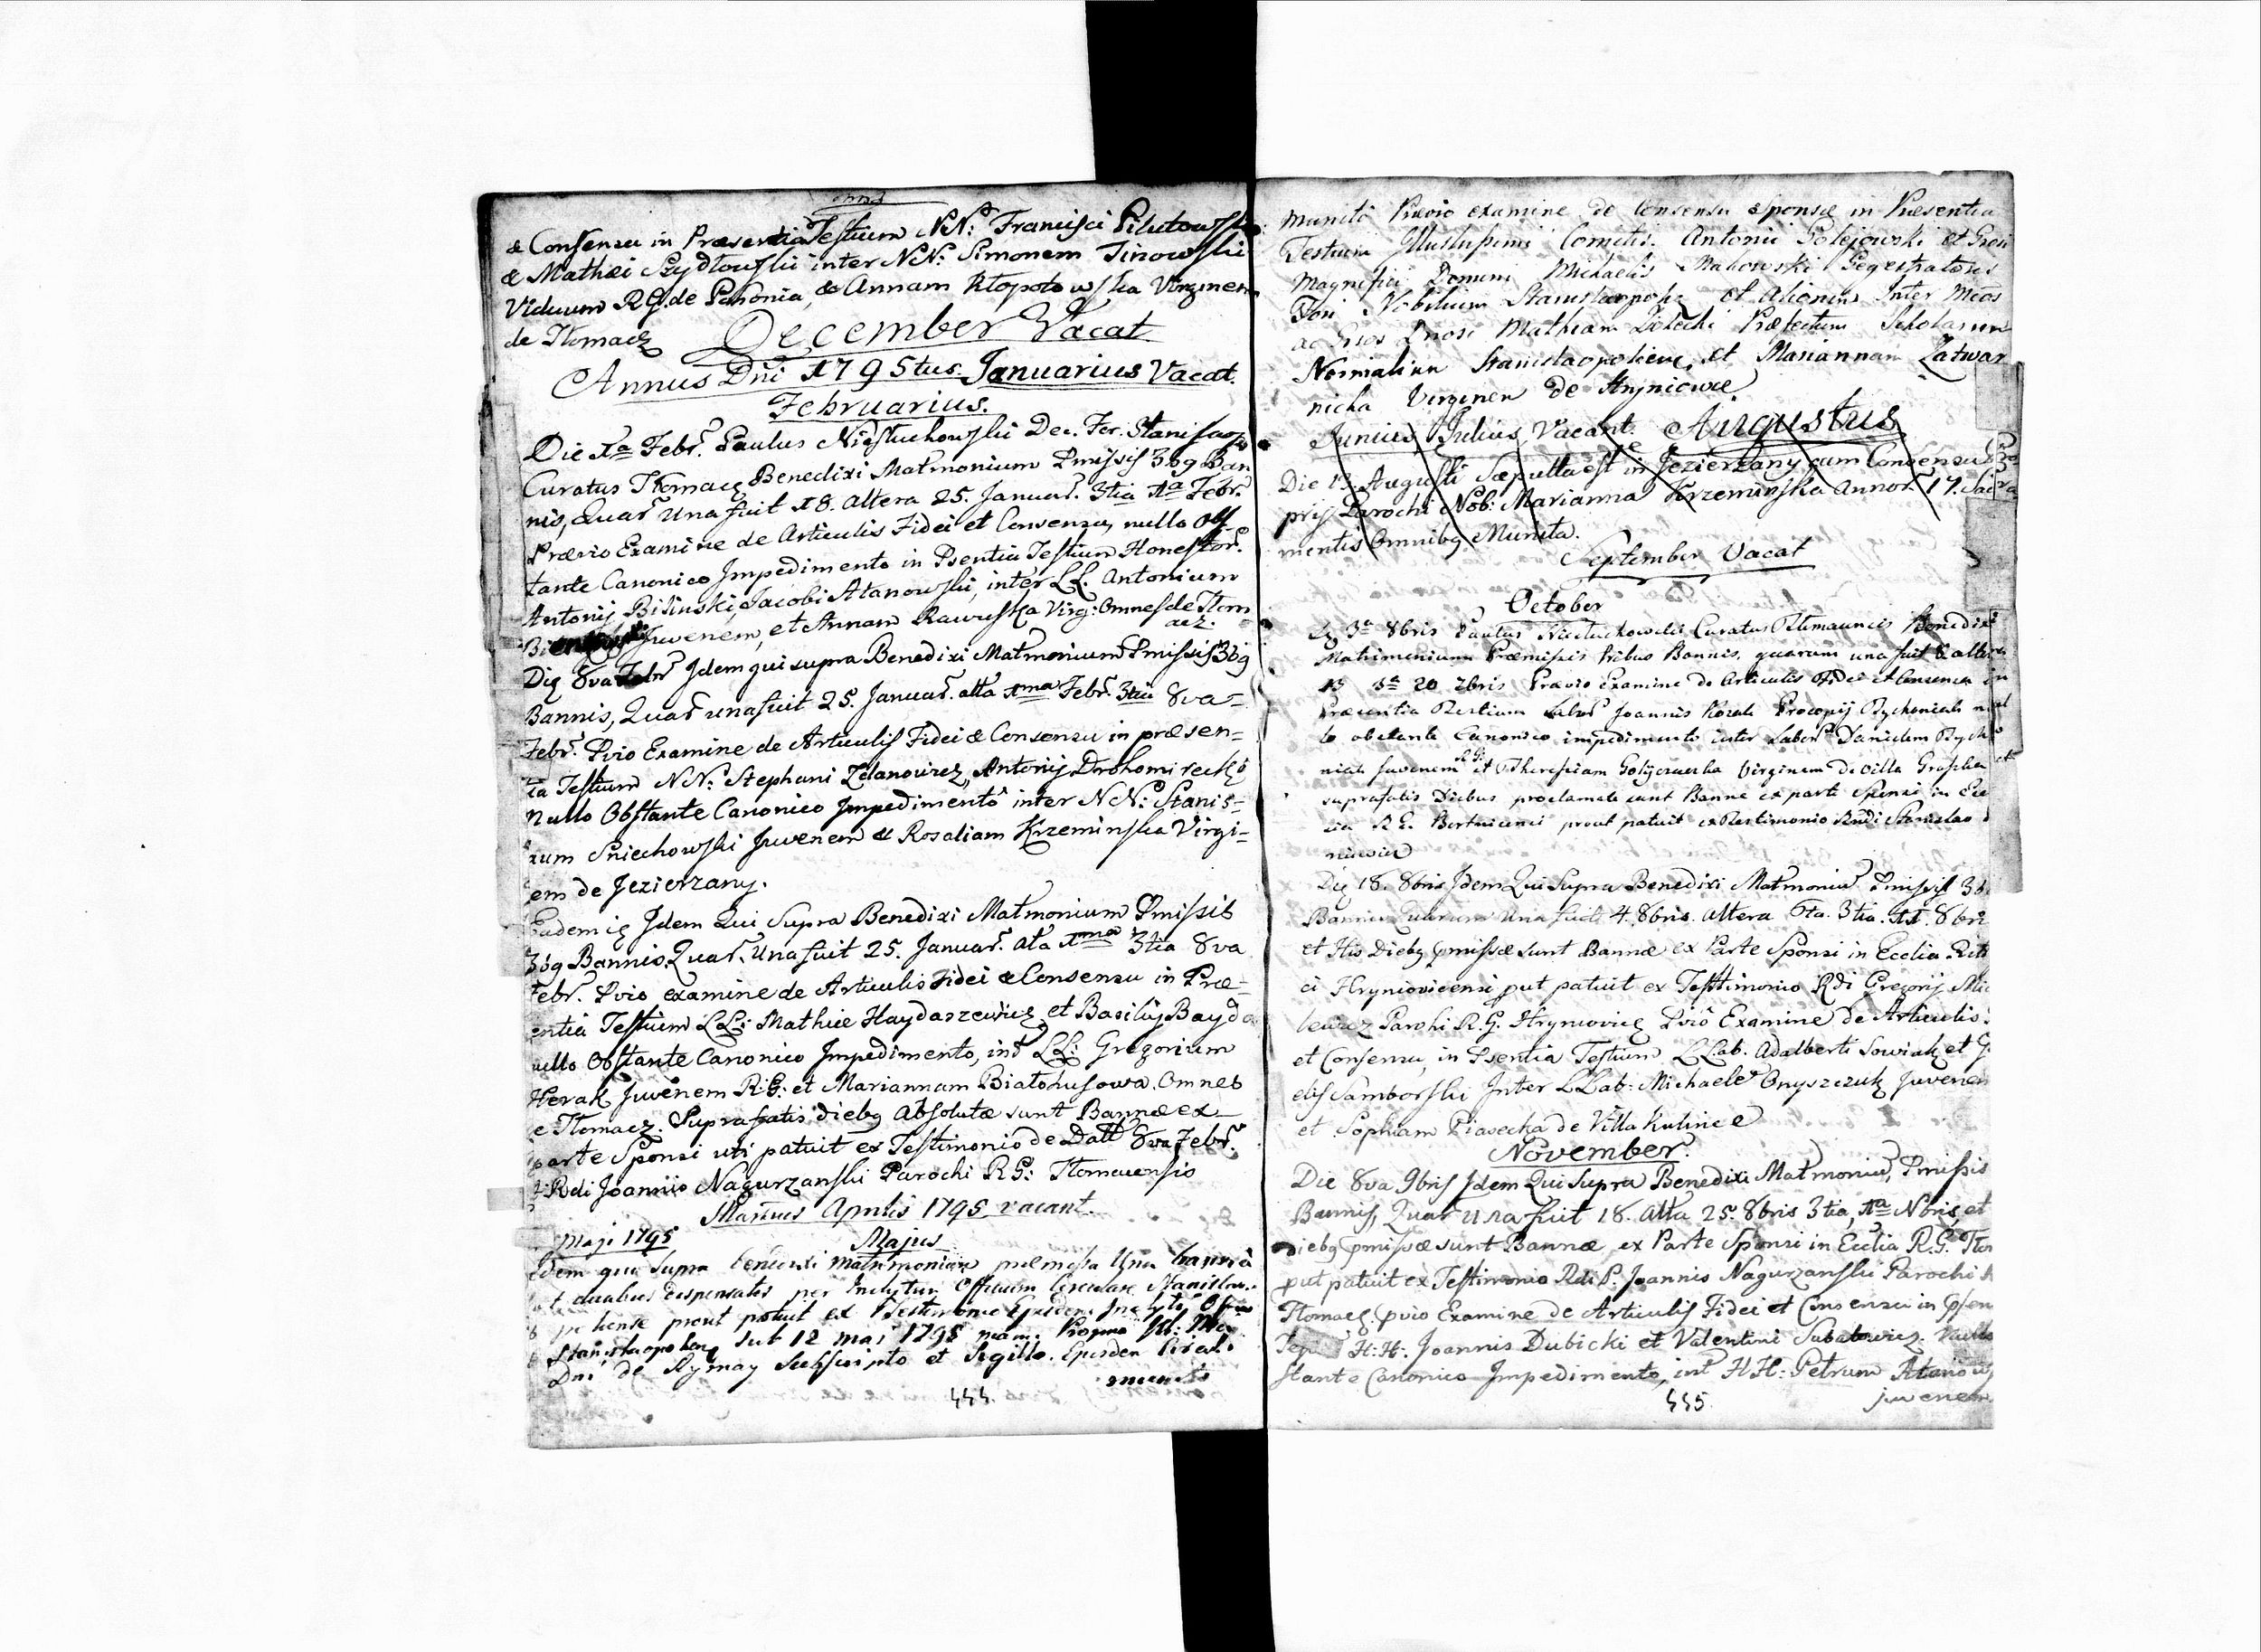 & Consensu in Præsentia Testium NN: Francisci Pilutowski
& Mathæi Szydłowski inter NN: Simonem Tinowski
Viduum R.G. de Pahonia, & Annam Kłopotowska Virginem
de Tłomacz December Vacat
Annus Dni 1795tus. Januarius Vacat.
Februarius.
Die 1a Febr. Paulus Niestuchowski Dec. For. Stanislaop
Curatus Tłomacz Benedixi Matmonium Pmissis 3bg Ban
nis, Quar Una fuit 18. altera 25. Januar. 3tia 1a Febr.
Prævio Examine de Articulis Fidei et Consensu, nullo Obs
tante Canonico Impedimento in Psentia Testium Honestor.
Antonij Bilinski, Jacobi Atanowski, inter LL. Antonium
Juvenem, et Annam Rawuska Virg: Omnes de Tłom
acz.
Die 8va Febr Idem qui supra Benedixi Matmonium Pmissis 3bg
Bannis, Quar una fuit 25. Januar. alta 1ma Febr. 3tia 8va
Febr. Pvio Examine de Articulis Fidei & Consensu in præsen=
tia Testium NN: Stephani Zdanowicz, Antonij Drohomirecki
Nullo Obstante Canonico Impedimento inter NN: Stanis=
Sniechowski Juvenem & Rosaliam Krzeminska Virgi=
em de Jezierzany.
Eadem ie Idem Qui Supra Benedixi Matmonium Pmissis
3bg Bannis. Quar. Una fuit 25. Januar. ata 1ma 3tia 8va
Febr. Pvio examine de Articulis Fidei & Consensu in Præ=
entia Testium LL: Mathiæ Haydaszewicz et Basilij Bayda
ullo Obstante Canonico Impedimento, int LL: Gregorium
Herak Juvenem R:G: et Mariannam Białohusowa. Omnes
e Tłomacz. Suprafatis diebg Absolutæ sunt Bannæ ex
parte Sponsi uti patuit ex Testimonio de Datt 8va Febr.
Rdi Joannis Nagurzanski Parochi R.G: Tłomacensis
Martius Aprilis 1795 vacant.
Maji 1795 Majus
dem qui supra benedixi matrimonium præmissa Una banna
t duabus dispensatis per Inclytum Officium Circulare Stanislao
hense prout patuit ex Testimonio Ejusdem Inclyti Offici
Stanislaopoliens sub 12 Maj 1795
Dni de Rymay Subscripto et Sigillo Ejusdem
munito
444.
munito Prævio examine de Consensu sponsæ in Præsentia
Testium Illustrissimi Comitis Antonii Golejowski et Grosi
Magnifici Domini Michaelis Makowski Seqestratoris
Fori Nobilium Stanislaopoli et Aliorum Inter Mcos
ac Grosos Dnos Mathiam Præfectum Scholarum
Normalium Stanislaopoliens, et Mariannam Zatwar
nicka Virginem de Hryniowce.
Junius, Julius Vacant. Augustus
Die 13. Augusti Sæpulta est in Jezierzany cum Consensu
prij Parochi Nob: Marianna Krzeminska Annor. 17. Sacra
mentis Omnibg Munita.
September Vacat
October
3a 8bris Paulus Niestuchowski Curatus Tlumaucis Benedixi
Matrimonium Præmissis tribus Bannis, quarum una fuit 6 altera
13 3a 20 7bris Prævio Examine de Articulis Fidei et Consensu in
Præsentia Testium Labor Joannis Kozak Procopij Rychoniak nul
lo obstante Canonico impedimento inter Labor Danielem Rycho
niak Juvenem R.G. et Theresiam Golyczewska Virginem de Villa Gruszka et
suprafatis Diebus proclamate sunt Banna ex parte Sponsi in Ecc
sia R.G. Bortnicensi prout patuit ex Testimonio Rndi Stanislao
Die 18. 8bris Idem Qui Supra Benedixi Matmoniu Pmissis 3b
Bannis Quarum Una fuit 4. 8bris. altera 6ta. 3tia. 11. 8bri
et His Diebg pmissæ sunt Bannæ ex Parte Sponsi in Ecclia Rit
ci Hryniovicensi put patuit ex Testimonio Rdi Gregorij Mic
lewicz Parohi R.G. Hryniowicz Pvio Examine de Articulis
et Consensu, in Psentia Testium LLab. Adalberti Sowiak et G
dis Samborski Inter LLab: Michaele Onyszczuk Juvenem
et Sophiam Piasecka de Villa Kulince
November.
Die 8va 9bris Idem Qui Supra Benedixi Matmoniu, Pmissis
Bannis, Quar Una fuit 18. Alta 25. 8bris 3tia, 1a Nbris, et
diebg pmissæ sunt Bannæ ex Parte Sponsi in Ecclia R.G. Tło
put patuit ex Testimonio Rdi P. Joannis Nagurzanski Parochi
Tłomacz pvio Examine de Articulis Fidei et Consensu in Psen
H:H: Joannis Dubicki et Valentini Subatowicz. Nullo
stante Canonico Impedimento, int HH: Petrum Atanows
juvenem.
445.